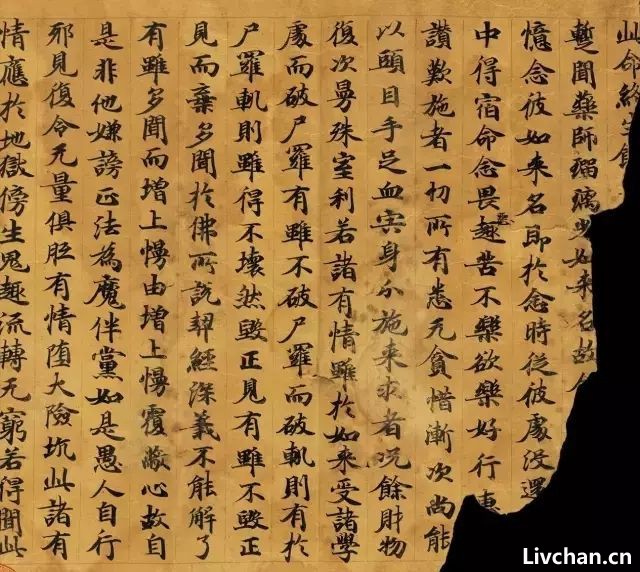 此命終生
暫聞藥師瑠璃光如來名故
憶念彼如來名即於念時從彼處沒還
中得宿命念畏惡趣苦不樂欲樂好行惠
讚歎施者一切所有悉无貪惜漸次尚能
以頭目手足血宍身分施來求者況餘財物
復次曼殊室利若諸有情雖於如來受諸學
處而破尸羅有雖不破尸羅而破軌則有於
尸羅軌則雖得不壞然毀正見有雖不毀正
見而棄多聞於佛所說契經深義不能解了
有雖多聞而增上慢由增上慢覆蔽心故自
是非他嫌謗正法為魔伴黨如是愚人自行
邪見復令无量俱胝有情墮大險坑此諸有
情應於地獄傍生鬼趣流轉无窮若得聞此
Livchan.cn